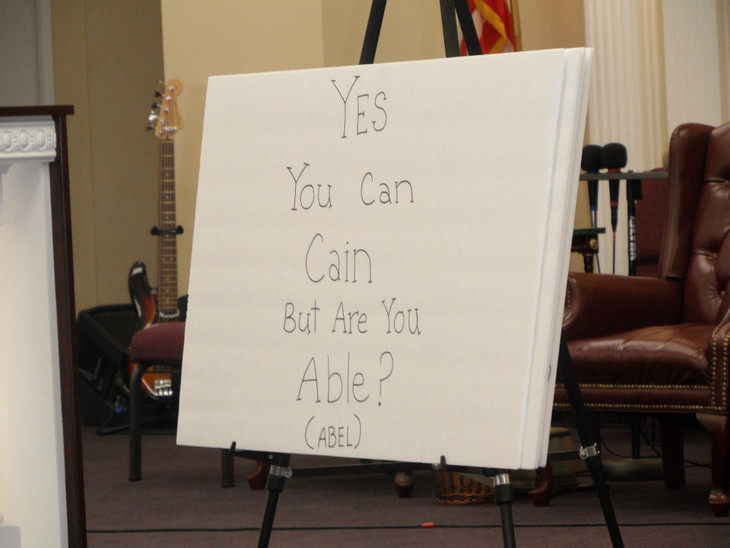 YES
You Can
Cain
But Are You
Able?
(ABEL)